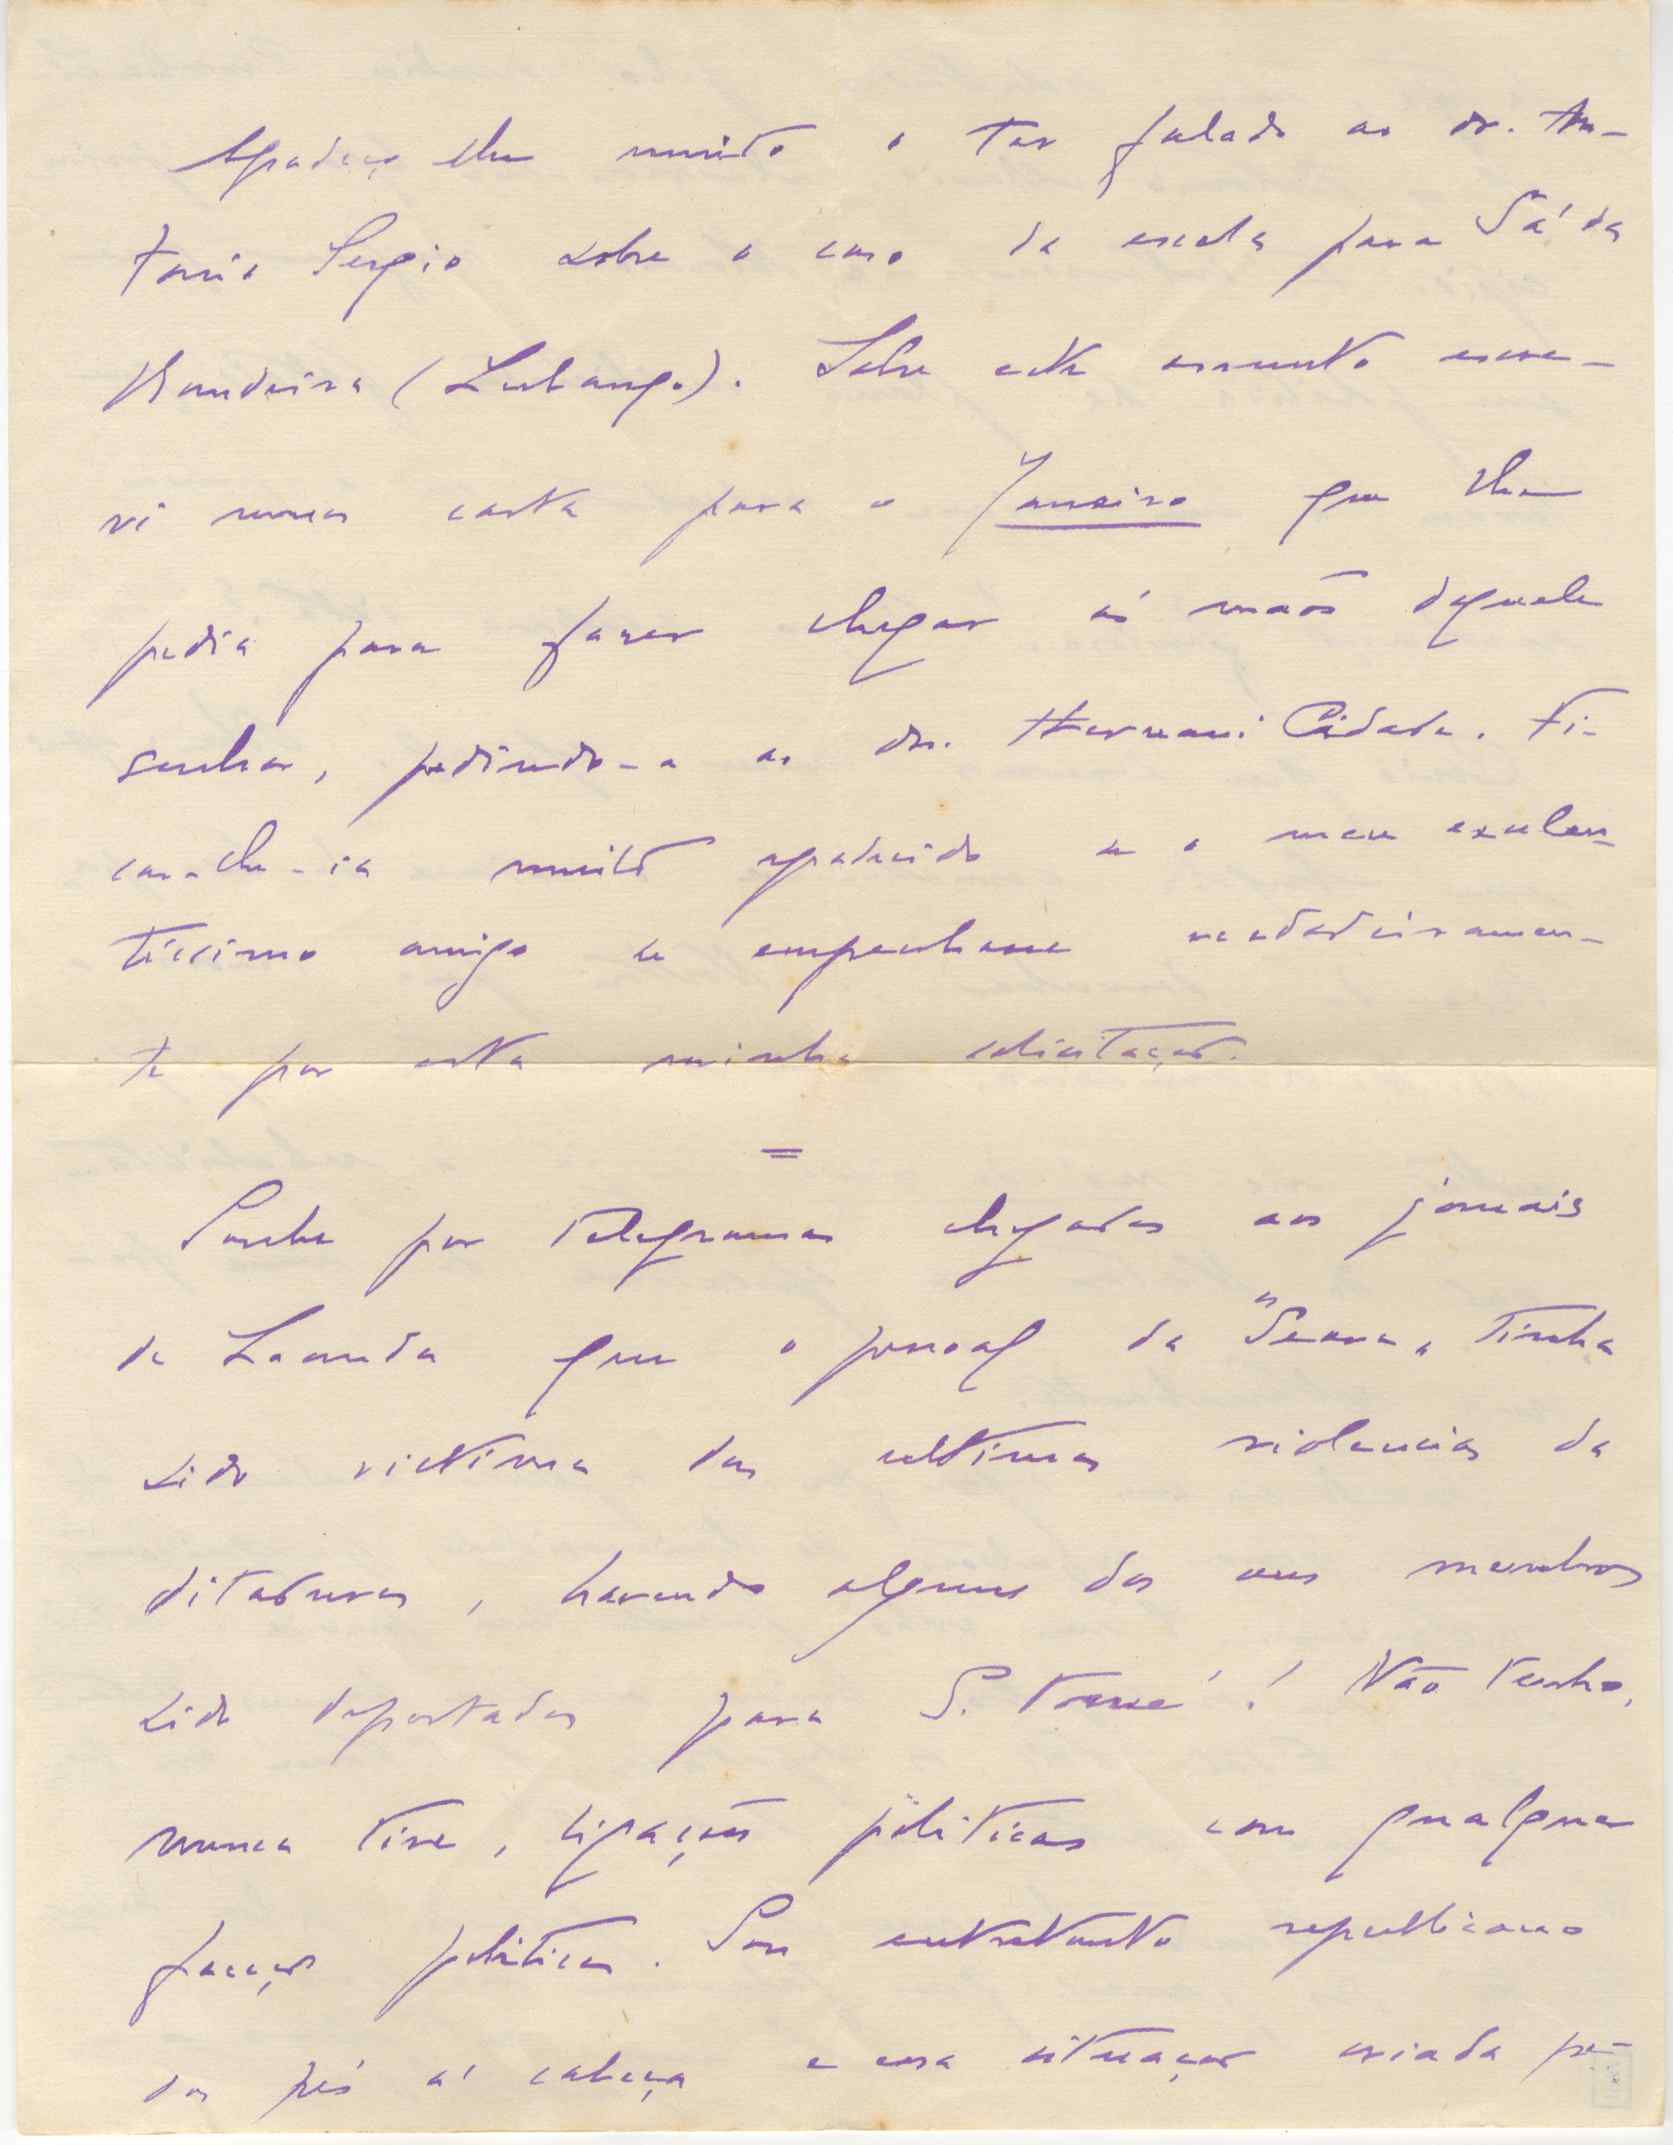 Agradeço-lhe muito o ter falado ao dr. An-
tonio Sergio sobre o caso da escola para Sá da
Bandeira (Lubango). Sobre este assunto escre-
vi numa carta para o Janeiro que lhe
pedia para fazer chegar ás mãos daquele
senhor, pedindo-a ao dr. Hernani Cidade. Fi-
car-lhe-ia muito agradecido se o meu excelen-
tissimo amigo se empenhasse verdadeiramen-
te por esta minha solicitação.
=
Soube por telegramas chegados aos jornais
de Loanda que o pessoal da "Seara" tinha
sido victima das ultimas violencias da
ditadura, havendo alguns dos seus membros
sido deportados para S. Tomé! Não tenho,
nunca tive, ligações politicas com qualquer
facção politica. Sou entretanto republicano
dos pés á cabeça e essa situação criada pe-